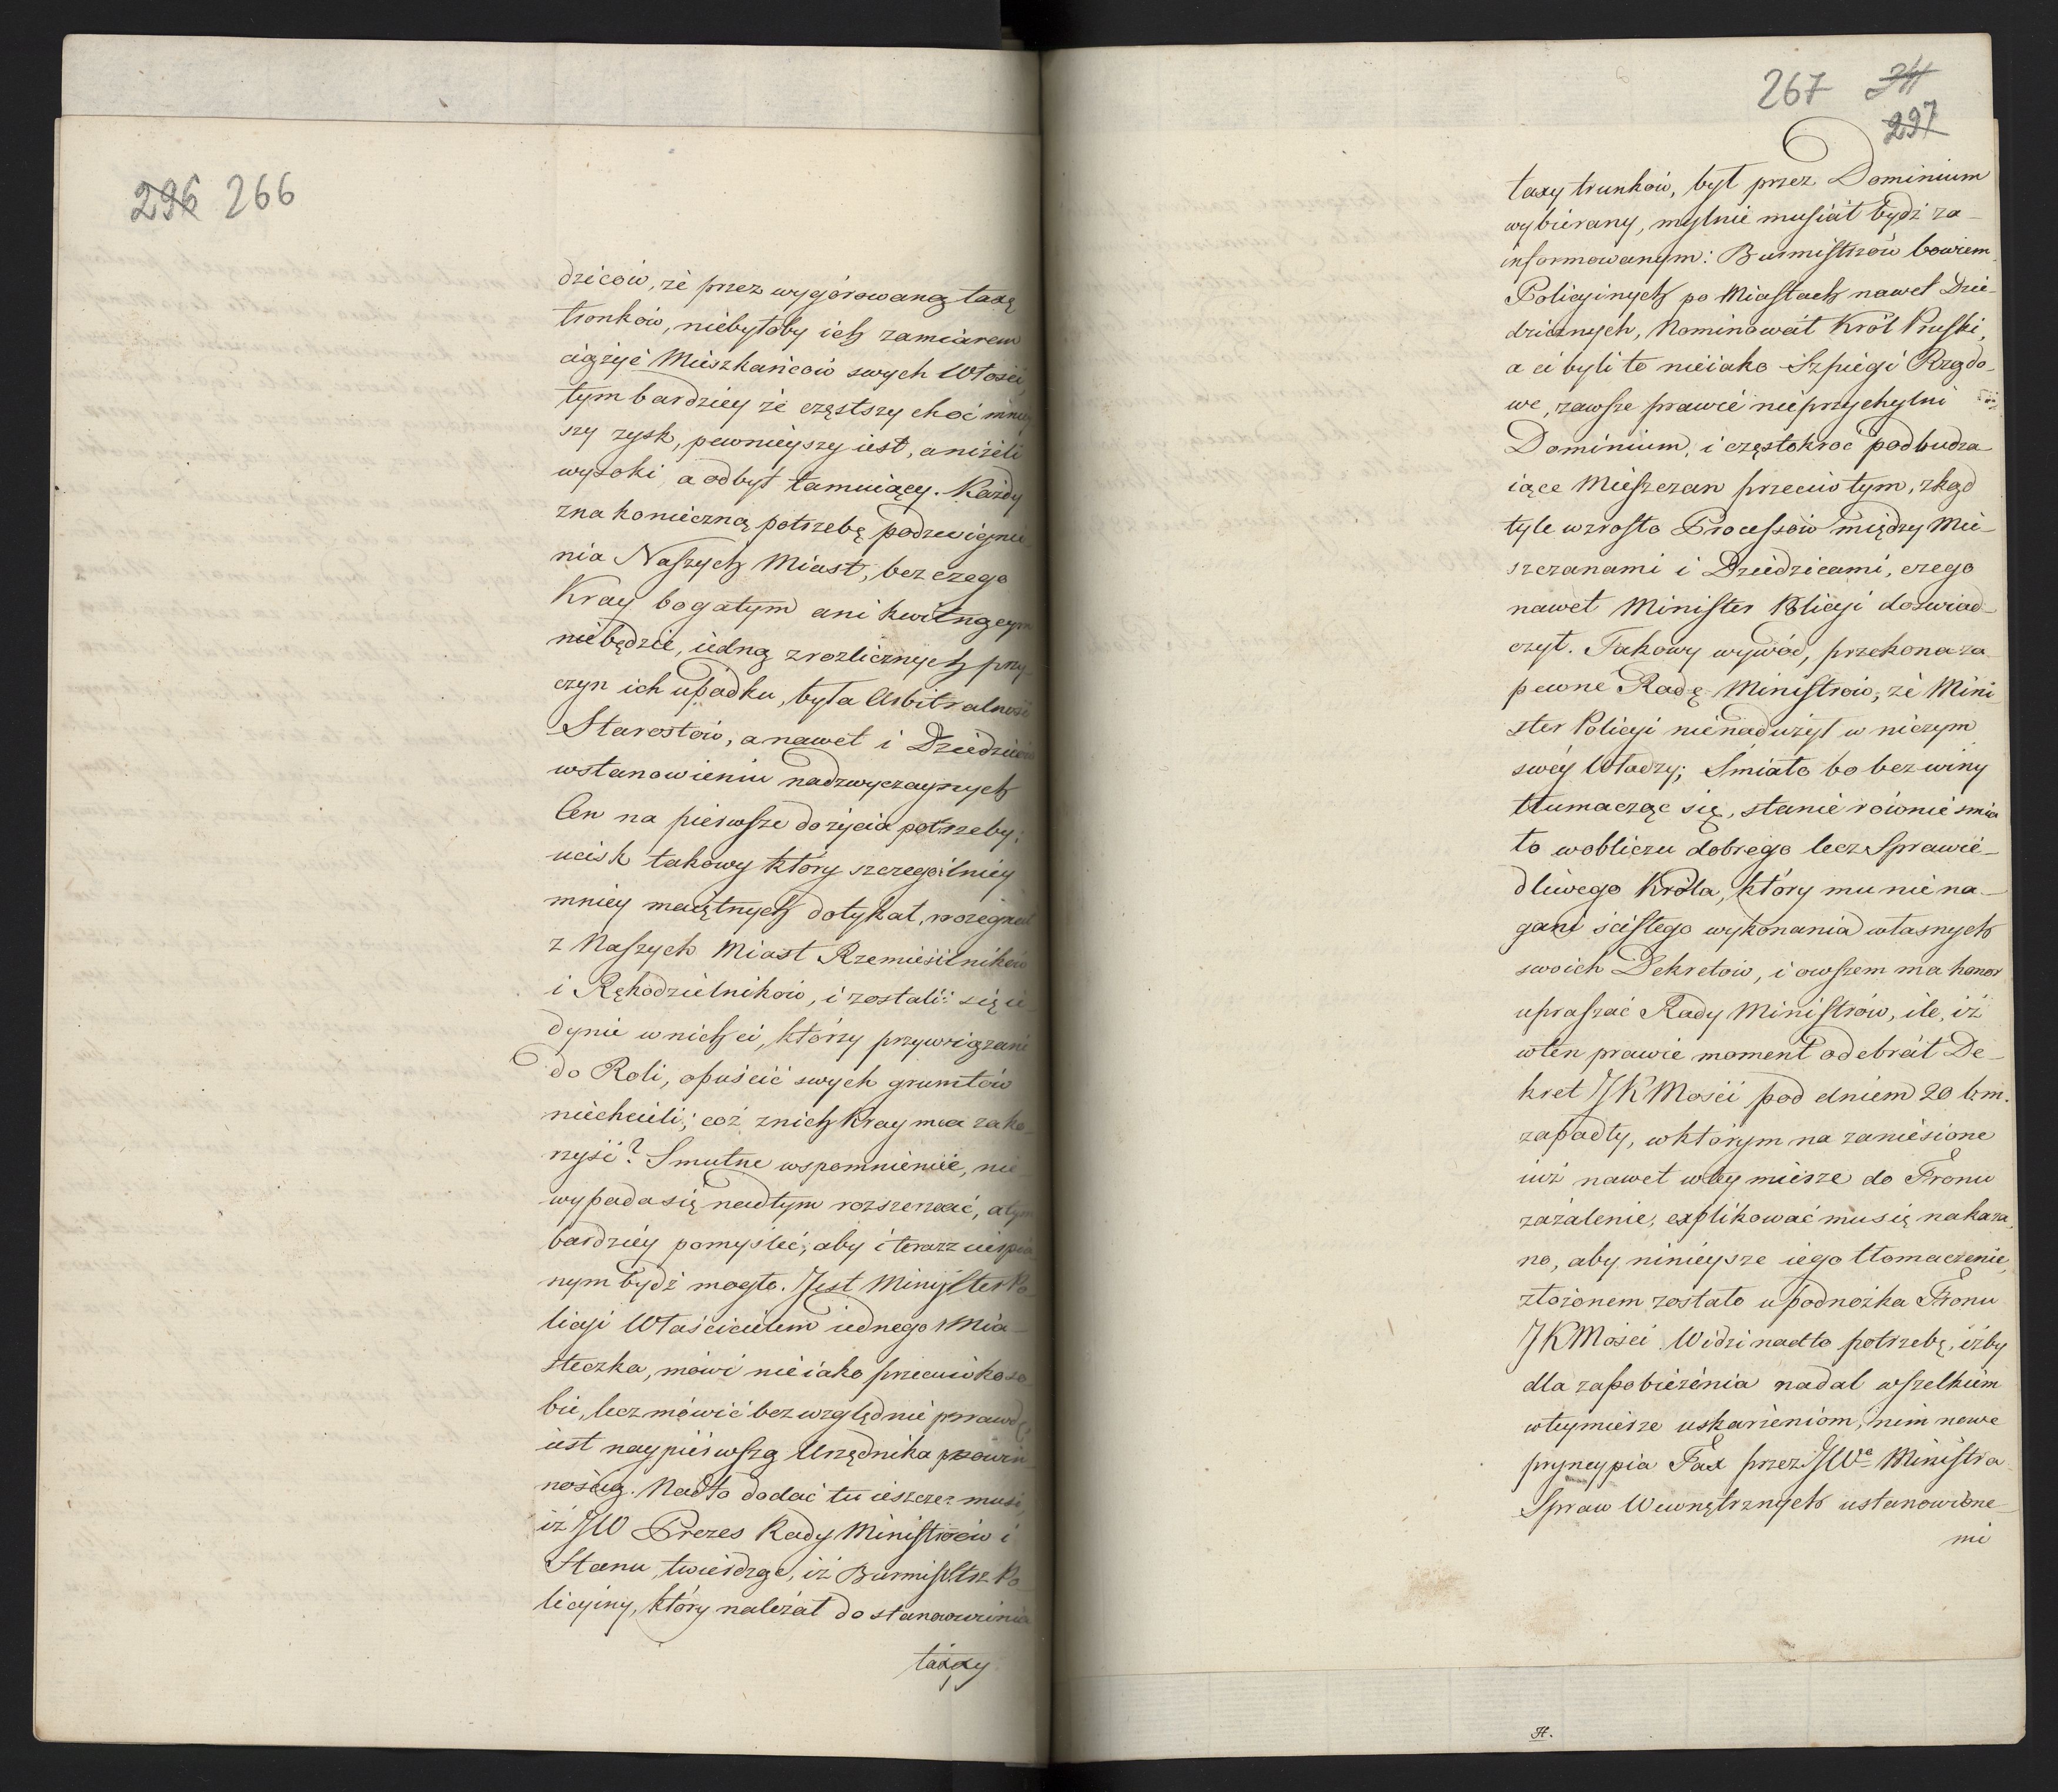 296 266
dziców, że przez wygórowaną taxę
tronków, niebyłoby ich zamiarem
ciążyć Mieszkańców swych Włości,
tym bardziey że częstszy choć mniey
szy zysk, pewnieyszy iest, aniżeli
wysoki, a odbyt tamuiący. Każdy
zna konieczną potrzebę podzwignie
nia Naszych Miast, bez czego
Kray bogatym ani kwitnącym
niebędzie, iedną z rozlicznych przy
czyn ich upadku, była Arbitralność
Starostów, a nawet i Dziedziców
wstanowieniu nadzwyczaynych
Cen na pierwsze do życia potrzeby;
ucisk takowy który szczegóilniey
mniey maiętnych dotykał, rozegnał
z Naszych Miast Rzemieśilników
i Rękodzielników, i zostali się ie
dynie w nich ci, którzy przywiązani
do Roli, opuścić swych gruntów
niechcieli; coż z nich Kray ma za ko
rzyść? Smutne wspomnienie, nie
wypada się nad tym rozszerzać, a tym
bardziéy pomyśleć, aby i teraz cierpia
nym bydź mogło. Jest Minister Po
licyi Właścicielem iednego Mia-
steczka, mówi nieiako przeciwko so
bie, lecz mówić bezwzględnie prawdę
iest naypierwszą Urzędnika powin
nością. Nadto dodać tu ieszcze musi,
iż JW Prezes Rady Ministrów i
Stanu, twierdząc, iż Burmistrz Po
licyiny, który należał do stanowienia
taxy
267 297
taxy trunków, był przez Dominium
wybierany, mylnie musiał bydź za-
informowanym: Burmistrzów bowiem
Policyinych po Miastach nawet Dzie-
dzicznych, Nominował Król Pruski,
a ci byli to nieiako Szpiegi Rządo-
we, zawsze prawie nieprzychylni
Dominium, i częstokroć podbudza
iące Mieszczan przeciw tym, zkąd
tyle wzrosło Processów między Mie-
szczanami i Dziedzicami, czego
nawet Minister Policyi doświad-
czył. Takowy wywód, przekona za
pewne Radę Ministrów, że Mini
ster Policyi nienadużył w niczym
swéy Władzy; Smiało bo bez winy
tłumacząc się, stanie równie śmia
ło w obliczu dobrego lecz Sprawie-
dliwego Króla, który mu nie na-
gani ścisłego wykonania własnych
swoich Dekretów, i owszem ma honor
upraszać Rady Ministrów, ile, iż
w ten prawie moment odebrał De-
kret JKMości pod dniem 20 b.m.
zapadły, w którym na zaniesione
iuż nawet w tey mierze do Tronu
zażalenie, explikować mu się nakaza
no, aby ninieysze iego tłomaczenie
złożonem zostało u podnożka Tronu
JKMości. Widzi nadto potrzebę, iżby
dla zapobieżenia nadal wszelkiem
w teymierze uskarżeniom, nim nowe
pryncypia Tax przez JWa Ministra
Spraw Wewnętrznych ustanowione-
mi
H.